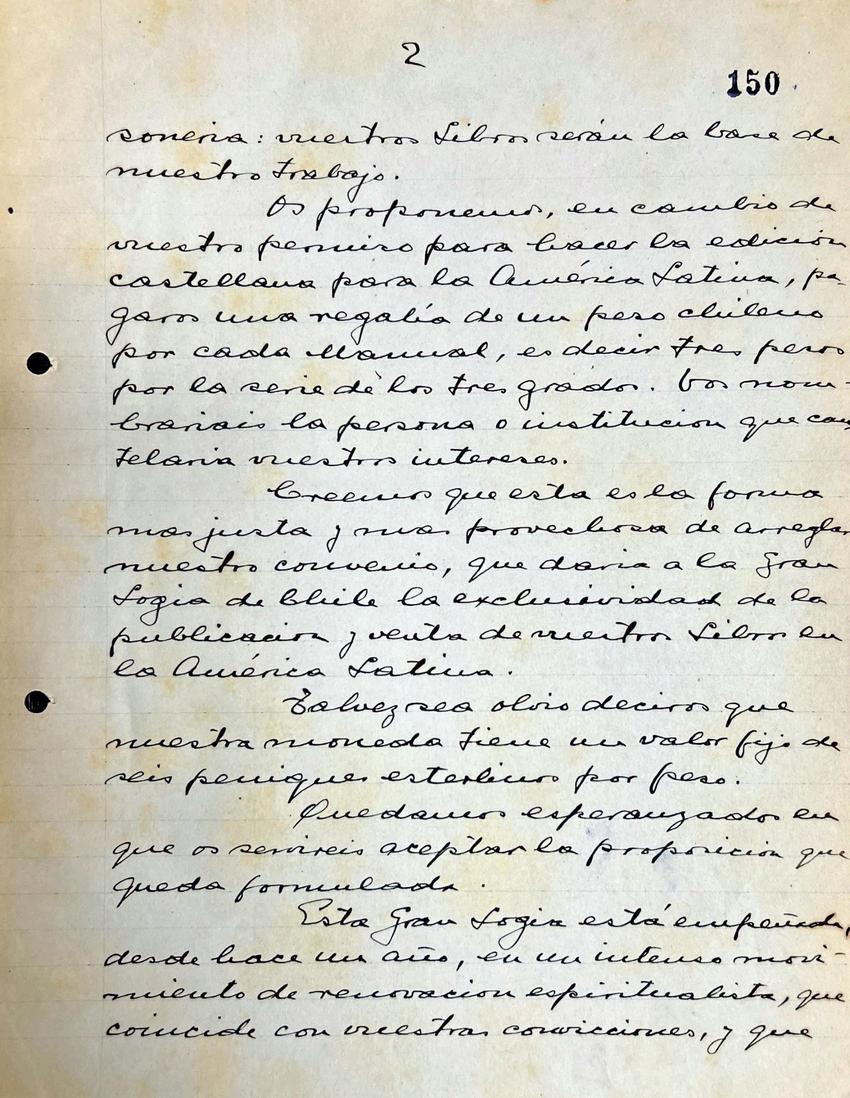 2
150
soneria: vuestros Libros serán la base de
nuestro trabajo.
Os proponemos, en cambio de
vuestro permiso para hacer la edición
castellana para la América Latina, pa-
garos una regalía de un peso chileno
por cada Manual, es decir tres pesos
por la serie de los tres grados. Vos nom-
brariais la persona o institucion que cau
telaria vuestros intereses.
Creemos que esta es la forma
mas justa y mas provechosa de arreglar
nuestro convenio, que daria a la Gran
Logia de Chile la exclusividad de la
publicacion y venta de vuestros Libros en
la América Latina.
Talvez sea obvio deciros que
nuestra moneda tiene un valor fijo de
seis peniques esterlinos por peso.
Quedamos esperanzados en
que os servireis aceptar la proposicion que
queda formulada.
Esta Gran Logia está empeñada,
desde hace un año, en un intenso movi-
miento de renovacion espiritualista, que
coincide con vuestras convicciones, y que